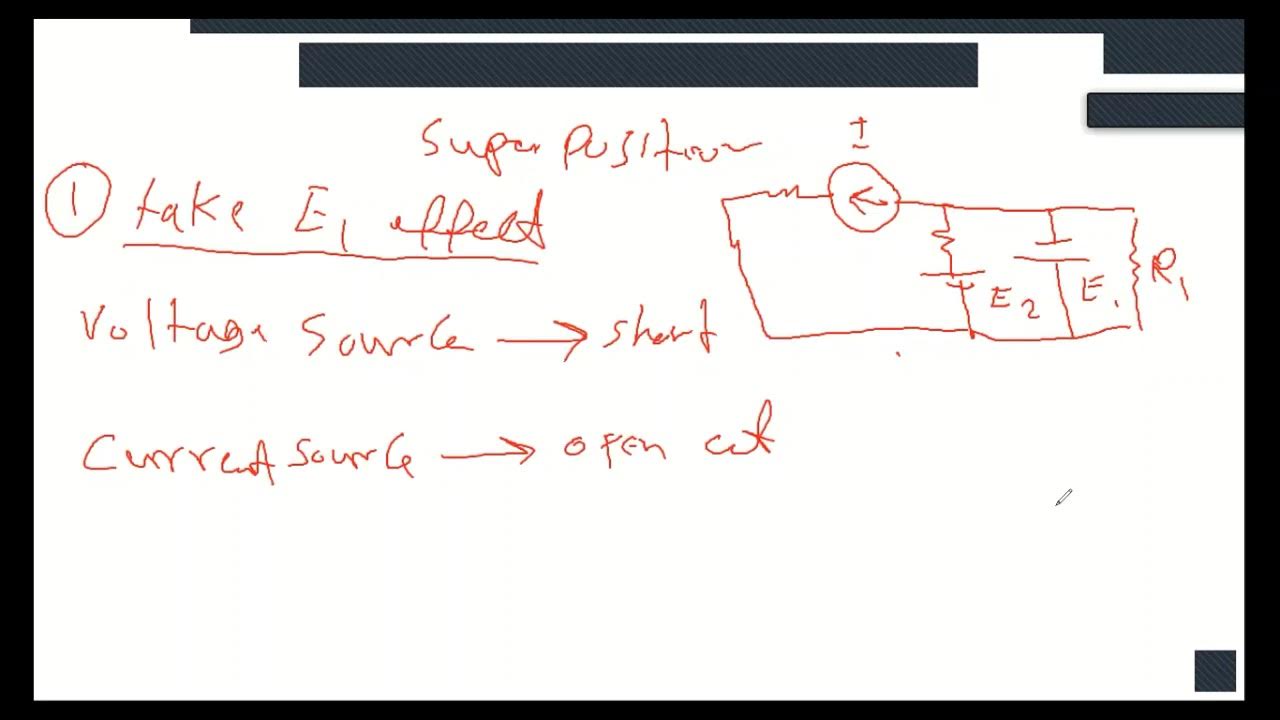 Super Position
① take E₁ effect
Voltage Source → short
Current source → open cct
I
E₂
E₁
R₁